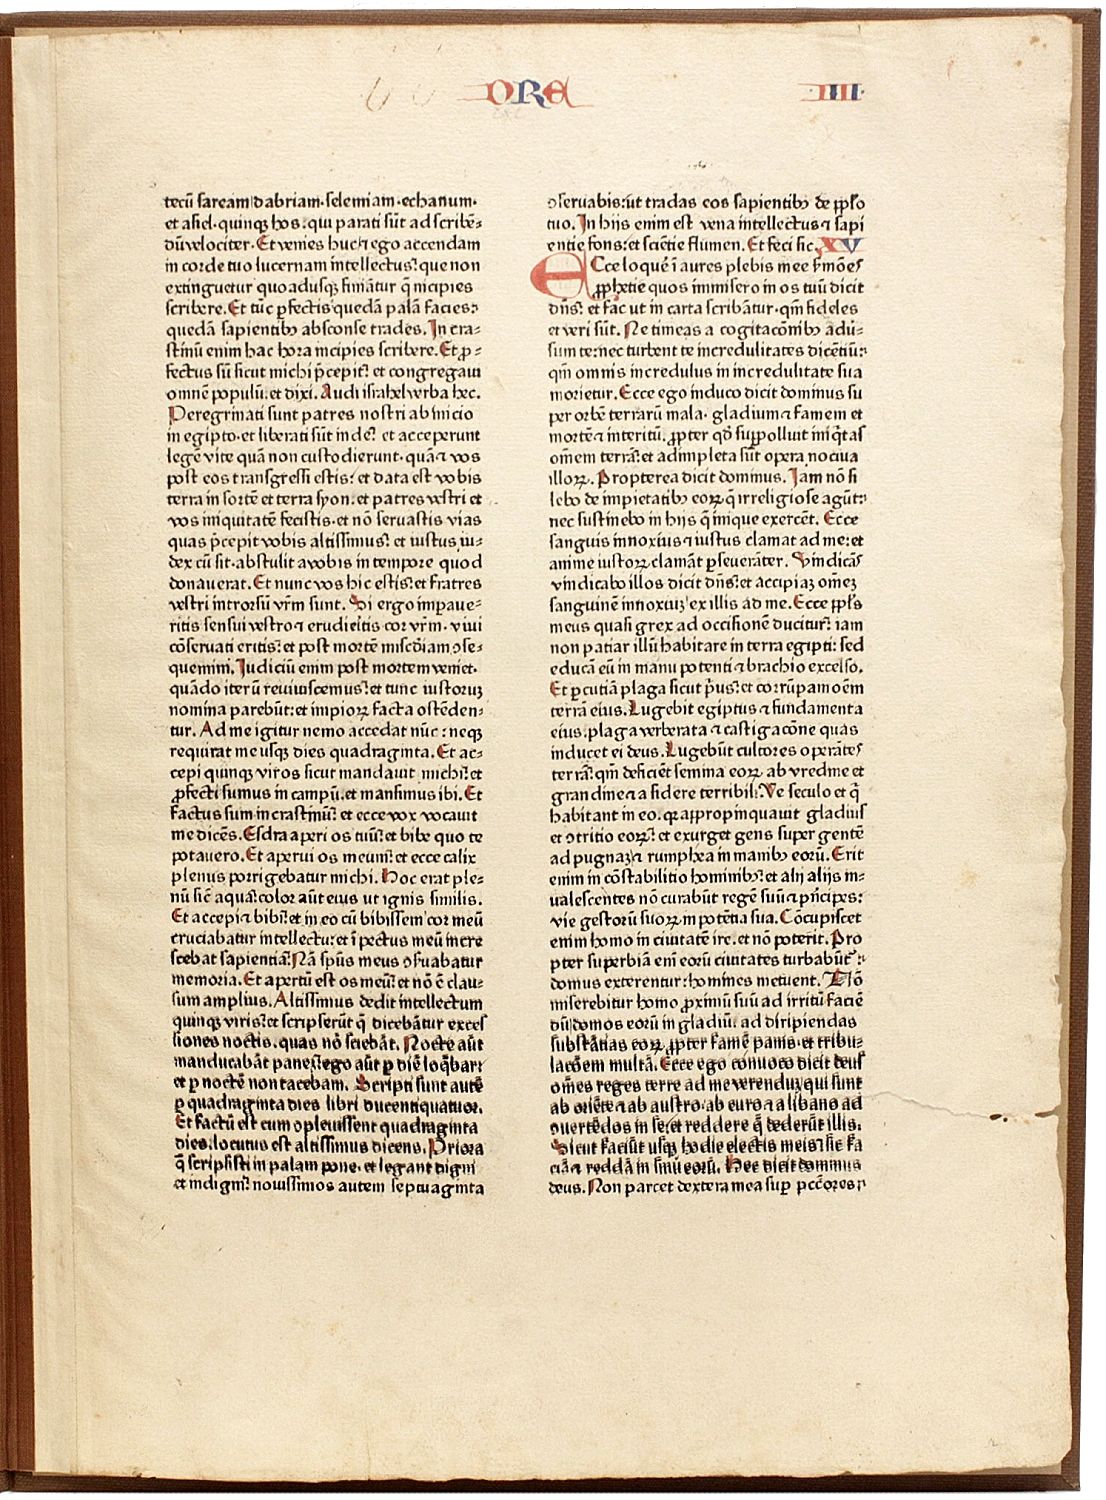 ORE
IIII
tecū saream dabriam·selemiam·echanum·
et asiel·quinqꝫ hos·qui parati sūt ad scribē⸗
dū velociter·Et venies huc ⁊ ego accendam
in corde tuo lucernam intellectus: que non
extinguetur quo adusqꝫ finiātur q̄ īcipies
scribere.Et tūc ꝑfectis quedā palā facies:
quedā sapientibꝰ absconse trades.In cra⸗
stinū enim hac hora incipies scribere.Et ꝓ⸗
fectus sū sicut michi p̄cepit: et congregaui
omnē populū.et dixi.Audi israhel verba hec.
Peregrinati sunt patres nostri ab inicio
in egipto·et liberati sūt inde: et acceperunt
legē vite quā non custodierunt·quā ⁊ vos
post eos transgressi estis: et data est vobis
terra in sortē et terra syon.et patres vestri et
vos iniquitatē fecistis·et nō seruastis vias
quas p̄cepit vobis altissimus: et iustus iu⸗
dex cū sit·abstulit a vobis in tempore quod
donauerat.Et nunc vos hic estis: et fratres
vestri introrsū vr̄m sunt. Si ergo impaue⸗
ritis sensui vestro ⁊ erudieitis cor vr̄m·viui
cōseruati eritis: et post mortē misc̄diam ↄse⸗
quemini.Judiciū enim post mortem veniet·
quādo iterū reuiuiscemus: et tunc iustoruꝫ
nomina parebūt: et impioꝝ facta ostēden⸗
tur. Ad me igitur nemo accedat nūc : neqꝫ
requirat me usqꝫ dies quadraginta.Et ac⸗
cepi quinqꝫ viros sicut mandauit michi: et
ꝓfecti sumus in campū.et mansimus ibi.Et
factus sum in crastinū: et ecce vox vocauit
me dicēs.Esdra aperi os tuū: et bibe quo te
potauero.Et aperui os meum: et ecce calix
plenus porrigebatur michi.Hoc erat ple⸗
nū sic̄ aqua: color aūt eius ut ignis similis.
Et accepi ⁊ bibi: et in eo cū bibissem cor meū
cruciabatur intellectu: et ī pectus meū incre
scebat sapientia: Nā sp̄us meus ↄseruabatur
memoria.Et apertū est os meū: et nō ē clau⸗
sum amplius.Altissimus dedit intellectum
quinqꝫ viris: et scripserūt q̄ dicebātur exces
siones noctis.quas nō sciebāt.Nocte aūt
manducabāt panē: ego aūt ꝑ diē loq̄bar:
et ꝑ noctē non tacebam. Scripti sunt autē
ꝑ quadraginta dies libri ducenti quatuor.
Et factū est cum ↄpleuissent quadraginta
dies.locutus est altissimus dicens.Priora
q̄ scripsisti in palam pone·et legant digni
et indigni: nouissimos autem septuaginta
ↄseruabis:ut tradas eos sapientibꝰ de pp̄lo
tuo.In hijs enim est vena intellectus ⁊ sapi
entie fons: et sciētie flumen.Et feci sic. XV
ECce loquē ī aures plebis mee ẜmōes
ꝓphetie quos immisero in os tuū dicit
dn̄s: et fac ut in carta scribātur·qm̄ fideles
et veri sūt. Ne timeas a cogitacōnibꝰ aduer⸗
sum te: nec turbent te incredulitates dicētiū:
qm̄ omnis incredulus in incredulitate sua
morietur.Ecce ego induco dicit dominus su
per orbē terrarū mala· gladium ⁊ famem et
mortē ⁊ interitū.ꝓpter qd̄ suꝑpolluit iniq̄tas
om̄em terrā: et adimpleta sūt opera nociua
illoꝝ. Propterea dicit dominus. Jam nō si
lebo de impietatibꝰ eoꝝ q̄ irreligiose agūt:
nec sustinebo in hijs q̄ inique exercēt. Ecce
sanguis innoxius ⁊ iustus clamat ad me: et
anime iustoꝝ clamāt ꝑseueranter. Vindicās
vindicabo illos dicit dn̄s: et accipiaꝫ om̄eꝫ
sanguinē innoxiuꝫ ex illis ad me.Ecce pp̄ls
meus quasi grex ad occisionē ducitur: iam
non patiar illū habitare in terra egipti: sed
educā eū in manu potenti ⁊ brachio excelso.
Et ꝑcutiā plaga sicut p̄us: et corrūpam oēm
terrā eius.Lugebit egiptus ⁊ fundamenta
eius.plaga verberata ⁊ castigacōne quas
inducet ei deus.Lugebūt cultores operātes
terrā: qm̄ deficiēt semina eoꝝ ab vredine et
grandine ⁊ a sidere terribili: Ve seculo et q̄
habitant in eo.qꝛ appropinquauit gladius
et ↄtritio eoꝝ: et exurget gens super gentē
ad pugnaꝫ ⁊ rumphea in manibꝰ eorū.Erit
enim in cōstabilitio hominibꝰ: et alij alijs in⸗
ualescentes nō curabūt regē suū ⁊ p̄ncipes:
vie gestorū suoꝝ in potētia sua.Cōcupiscet
enim homo in ciuitatē ire.et nō poterit.Pro
pter superbiā enī eorū ciuitates turbabūt:
domus exterentur: homines metuent. Nō
miserebitur homo proximū suū ad irritū faciē
dū domos eorū in gladiū. ad diripiendas
substātias eoꝝ ꝓpter famē panis·et tribu⸗
lacōem multā.Ecce ego conuoco dicit deus
om̄es reges terre ad me verenduꝫ qui sunt
ab oriēte ⁊ ab austro·ab euro ⁊ a libano ad
ↄuertēdos in se: et reddere q̄ dederūt illis.
Sicut faciūt usqꝫ hodie electis meis: sic fa
ciā ⁊ reddā in sinū eorū. Hec dicit dominus
deus.Non parcet dextera mea suꝑ pcc̄ores: